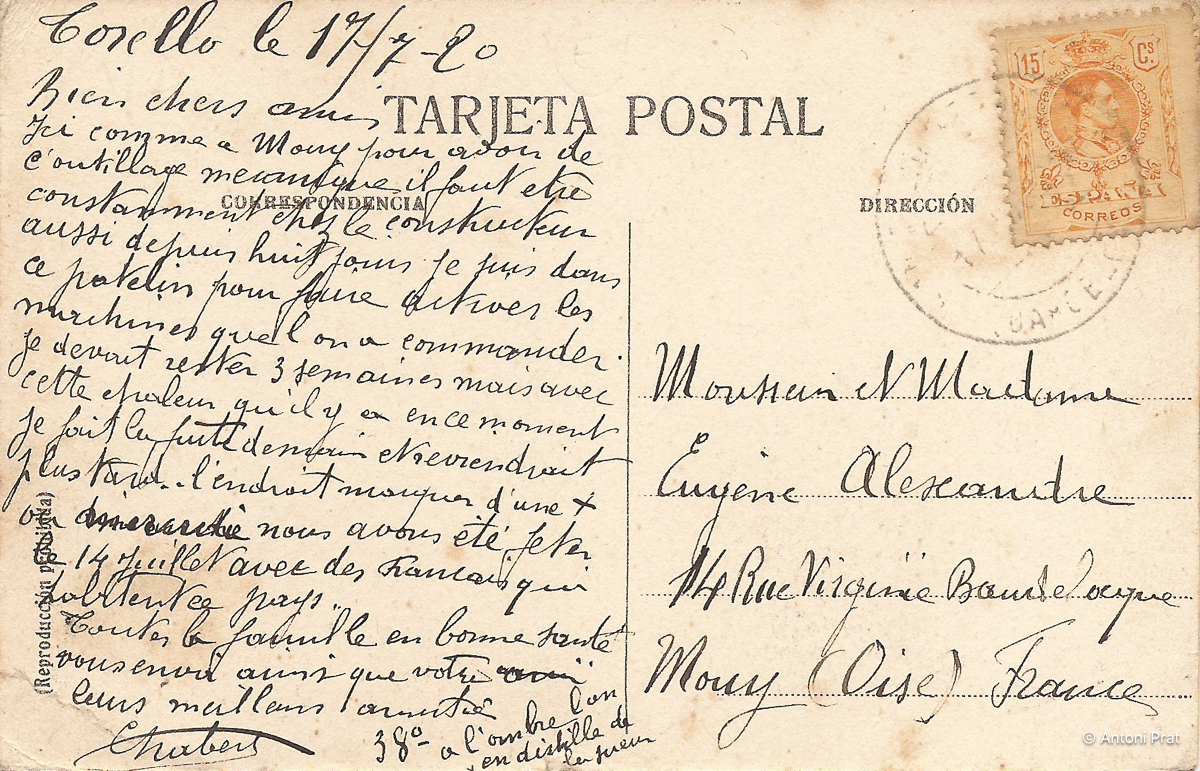 Torello le 17/7-20
Bien chers amis
TARJETA POSTAL
Ici comme a Mouy pour avoir de
l'outillage mecanique il faut etre
CORRESPONDENCIA
constamment chez le constructeur
aussi depuis huit jours je suis dans
ce patelin pour faire activer les
machines que l'on a commander.
je devait rester 3 semaines mais avec
cette chaleur qu'il y a en ce moment
je fait la fuite demain et reviendrait
plus tard.. l'endroit marquer d'une +
ou nous avous été feter
le 14 Juillet avec des Francais qui
habitent ce pays..
Toutes la famille en bonne santé
vous envoi ainsi que votre ami
leurs meilleurs amitié
Chabert
38° a l'ombre l'on
en distille de
la sueur
(Reproducción prohibida)
DIRECCIÓN
15 Cs.
ESPAÑA
CORREOS
BARCELO
Monsieur et Madame
Eugène Alexandre
14 Rue Virginie Baudelocque
Mouy (Oise) France
© Antoni Prat